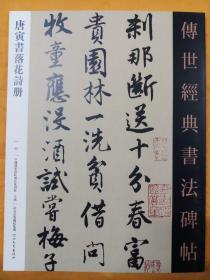 傳世經典書法碑帖
唐寅書落花詩册
刹那斷送十分春富
貴園林一洗貧借問
牧童應没酒試嘗梅子